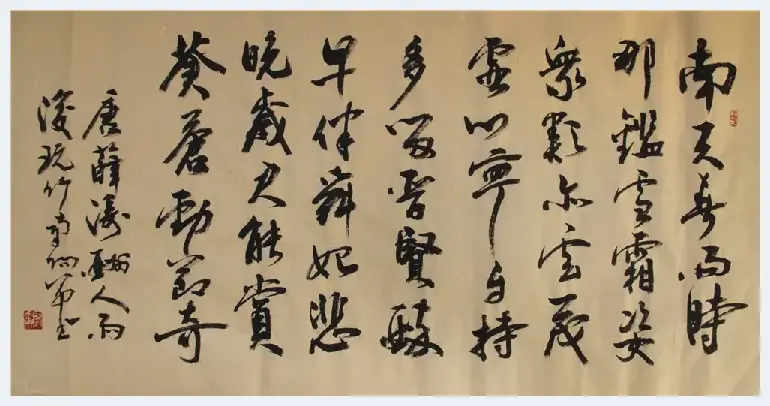 南天春雨時
那鑑雪霜姿
衆類亦云茂
虚心寧自持
多留晉賢醉
早伴舜妃悲
晚歲君能賞
蒼蒼勁節奇
唐薛濤酬人雨
後玩竹